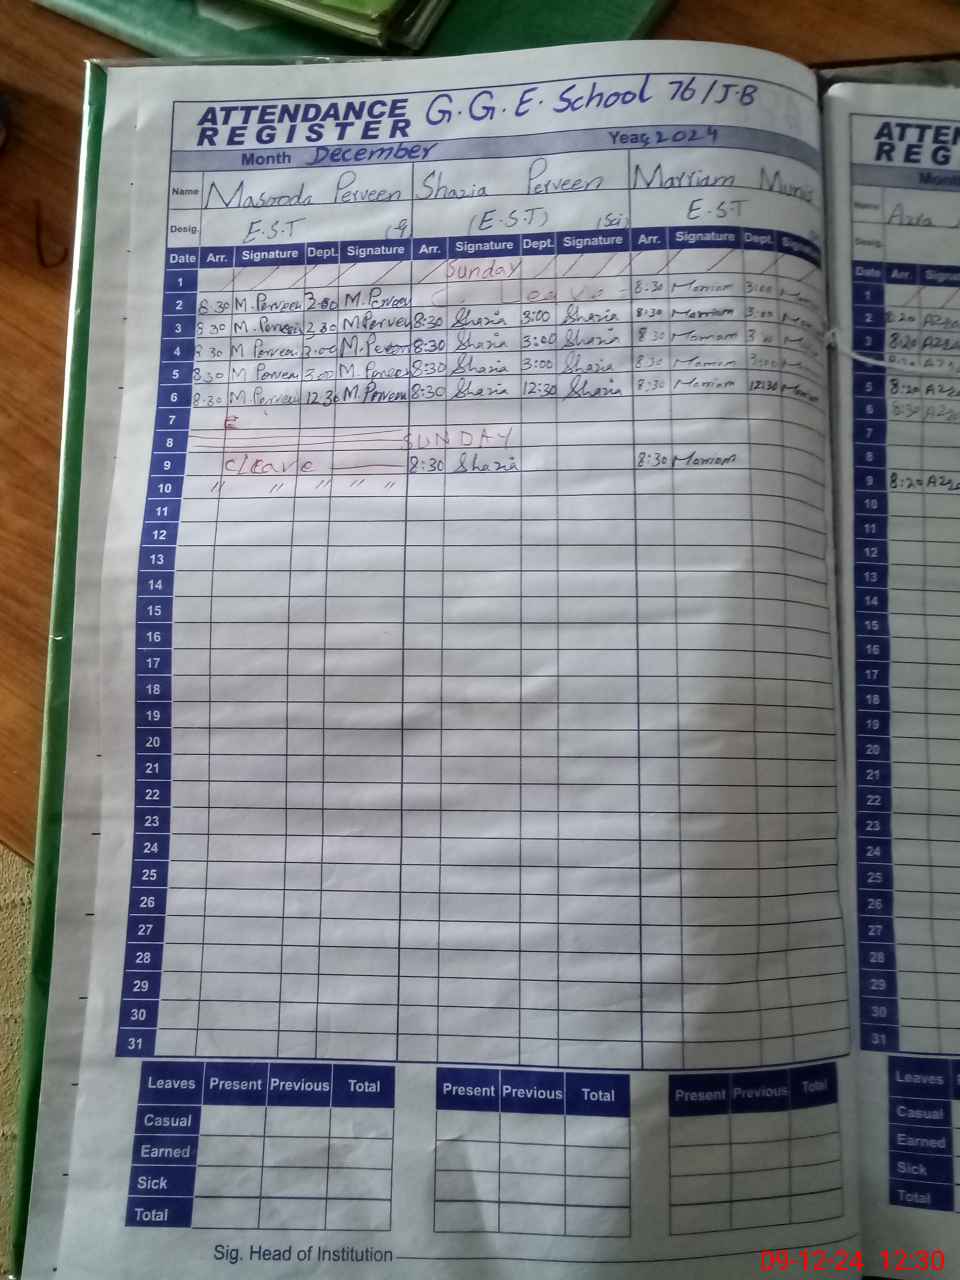 ATTENDANCE REGISTER G.G.E. School 76/J.B
Month December Year 2024
Name Masooda Perveen Shazia Perveen Marriam
Desig. E.S.T (E.S.T) (Sci) E.S.T
Date Arr. Signature Dept. Signature Arr. Signature Dept. Signature Arr. Signature Dept. Signature
1 Sunday
2 8:30 M.Perveen M.Perveen C. Leave 8:30 Marriam 3:00
3 8:30 M.Perveen M.Perveen 8:30 Shazia 3:00 Shazia 8:30 Marriam 3:00
4 8:30 M Perveen 3:00 M.Perveen 8:30 Shazia 3:00 Shazia 8:30 Marriam 3:00
5 8:30 M Perveen 3:00 M.Perveen 8:30 Shazia 3:00 Shazia 8:30 Marriam 3:00
6 8:30 M.Perveen 12:30 M.Perveen 8:30 Shazia 12:30 Shazia 8:30 Marriam 12:30 Marriam
7 E
8 SUNDAY
9 Cleave 8:30 Shazia 8:30 Marriam
10 〃 〃 〃 〃 〃
11
12
13
14
15
16
17
18
19
20
21
22
23
24
25
26
27
28
29
30
31
Leaves Present Previous Total Present Previous Total Present Previous Total
Casual
Earned
Sick
Total
Sig. Head of Institution
ATTEN
REG
Month
Name Azra
Desig.
Date Arr. Signa
1
2 8:20
3 8:20
5 8:20
6 8:30
7
8
9 8:20
10
11
12
13
14
15
16
17
18
19
20
21
22
23
24
25
26
27
28
29
30
31
Leaves
Casual
Earned
Sick
Total
09-12-24 12:30